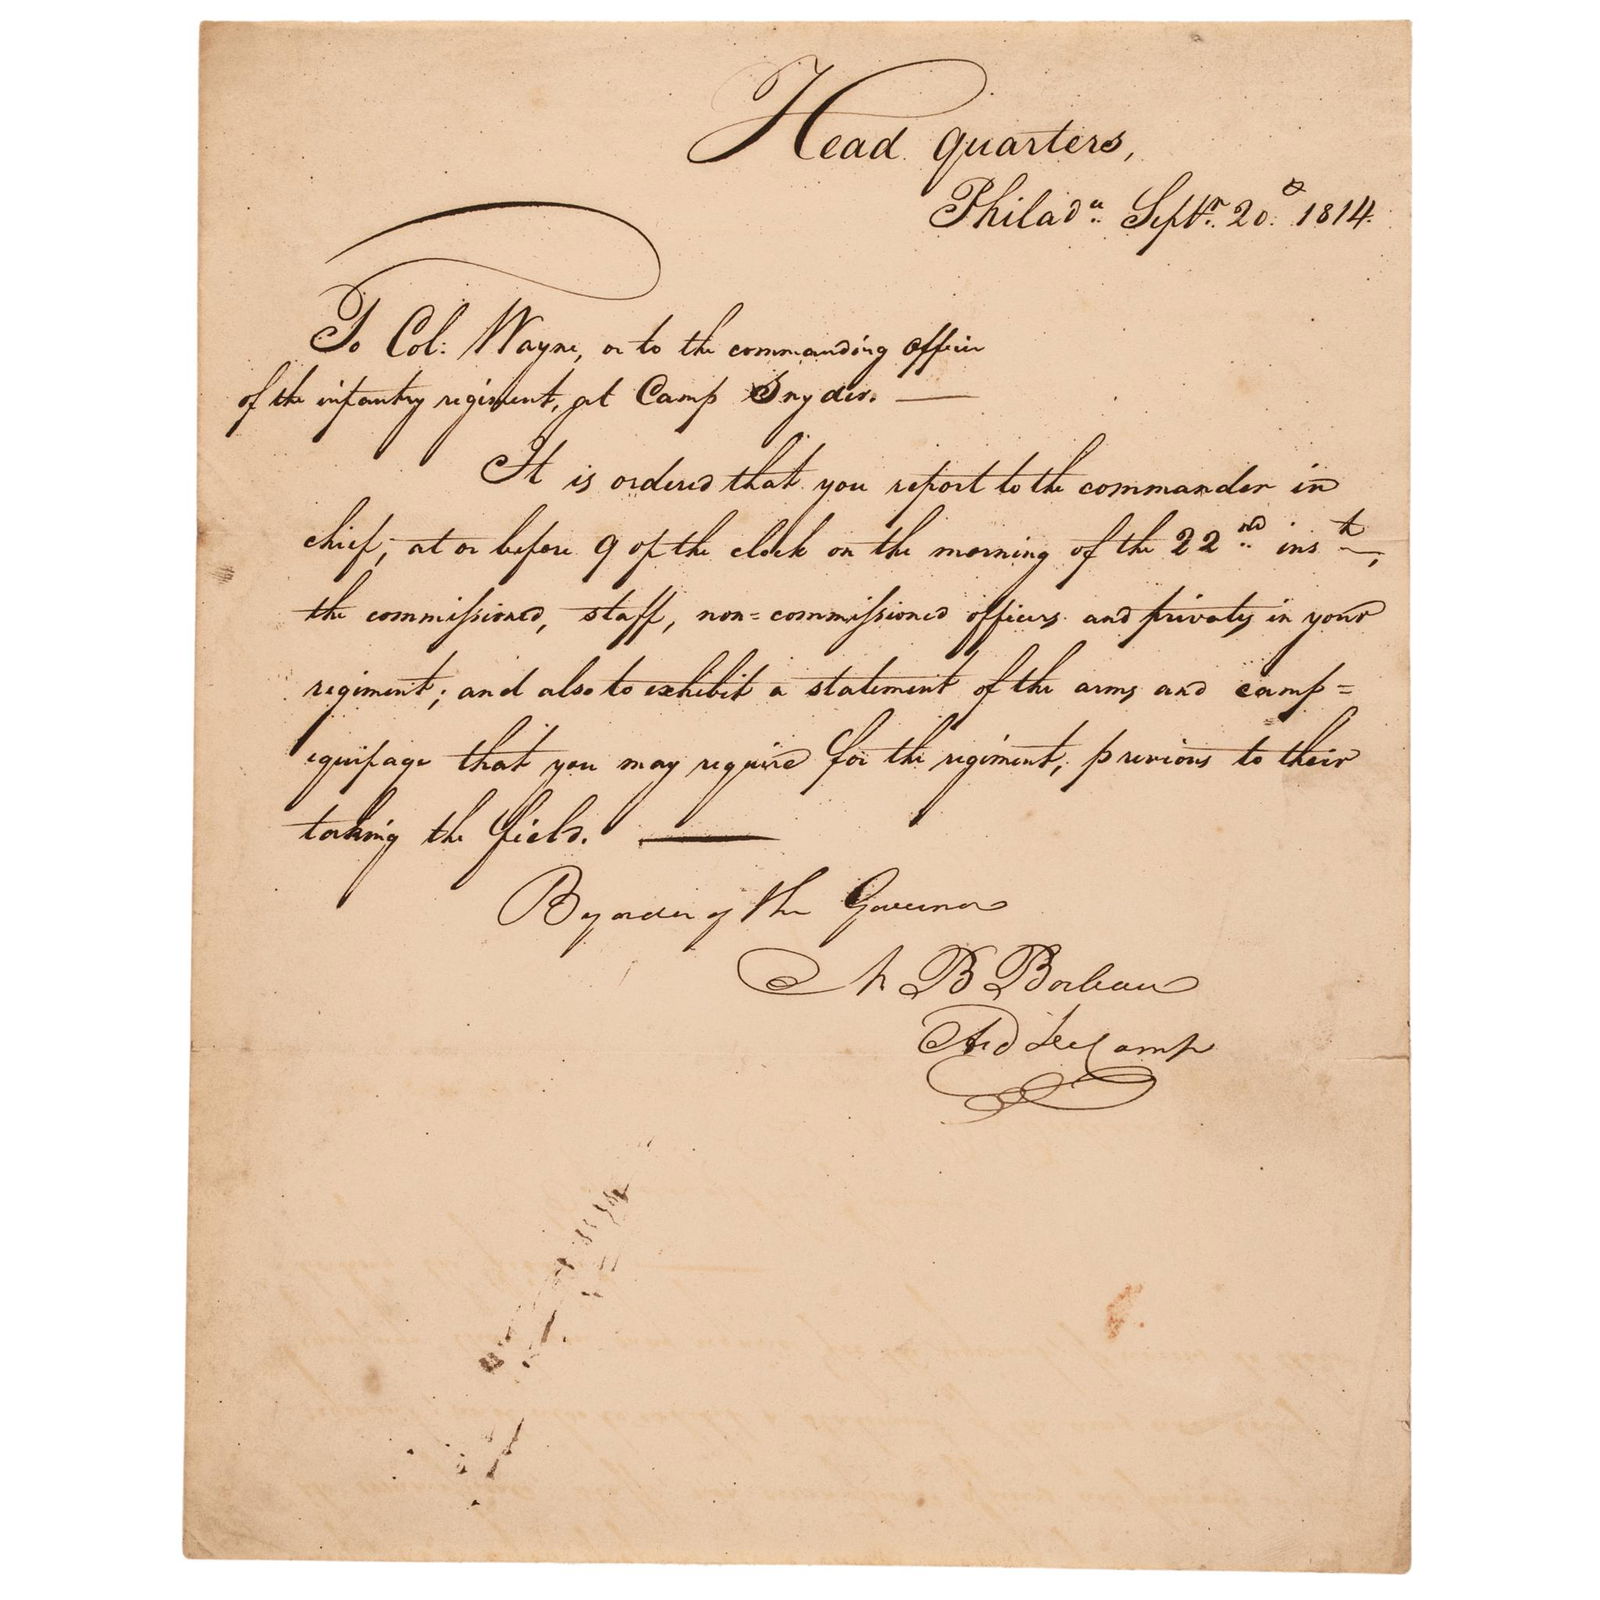 Head quarters,
Philad.ª Septr. 20. 1814.
To Col: Wayne, or to the commanding officer
of the infantry regiment, at Camp Snyder. —
It is ordered that you report to the commander in
chief, at or before 9 of the clock on the morning of the 22nd inst,
the commissioned, staff, non=commissioned officers and privates in your
regiment; and also to exhibit a statement of the arms and camp=
equipage that you may require for the regiment, previous to their
taking the field. —
By order of the Governor
B
Aid de Camp